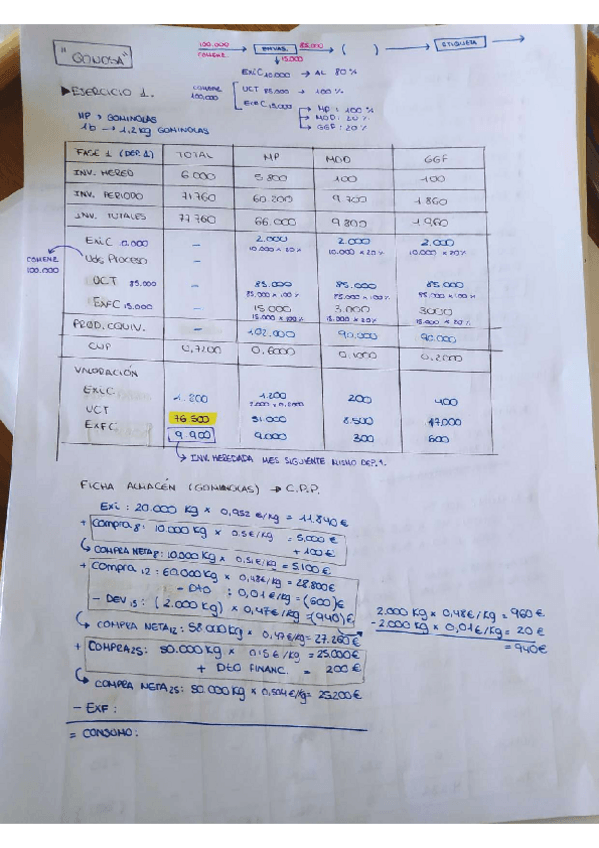 "GONOSA"
100.000 COMENZ. ENVAS. 85.000 ( ) ETIQUETA
15.000
EXIC 10.000 → AL 80%
▶ EJERCICIO 1.
COMENZ 100.000
UCT 85.000 → 100%
EXFC 15.000 → MP: 100%
→ MOD: 20%
→ GGF: 20%
MP → GOMINOLAS
1b → 1,2 kg GOMINOLAS
FASE 1 (DEP.1) TOTAL MP MOD GGF
INV. HERED 6.000 5.800 100 100
INV. PERIODO 71.760 60.200 9.700 1.860
INV. TOTALES 77.760 66.000 9.800 1.960
EXIC 10.000 - 2.000 2.000 2.000
10.000 x 20% 10.000 x 20% 10.000 x 20%
COMENZ 100.000
Uds Proceso -
UCT 85.000 - 85.000 85.000 85.000
85.000 x 100% 85.000 x 100% 85.000 x 100%
EXFC 15.000 - 15.000 3.000 3000
15.000 x 100% 15.000 x 20% 15.000 x 20%
PROD. EQUIV. - 102.000 90.000 90.000
CUP 0,7200 0,6000 0,1000 0,2000
VALORACIÓN
EXIC 1.800 1.200 200 400
UCT 76.500 51.000 8.500 17.000
EXFC 9.900 9.000 300 600
→ INV. HEREDADA MES SIGUIENTE MISMO DEP.1.
FICHA ALMACÉN (GOMINOLAS) → C.P.P.
Exi: 20.000 kg x 0,952 €/kg = 11.840 €
+ Compra 8: 10.000 kg x 0,5 €/kg = 5.000 €
+ 100 €
↳ COMPRA NETA 8: 10.000 kg x 0,51 €/kg = 5.100 €
+ Compra 12: 60.000 kg x 0,48 €/kg = 28.800 €
- DTO : 0,01 €/kg = (600) €
- DEV 15: (2.000 kg) x 0,47 €/kg = (940) €
2.000 kg x 0,48 €/kg = 960 €
- 2.000 kg x 0,01 €/kg = 20 €
= 940 €
↳ COMPRA NETA 12: 58.000 kg x 0,47 €/kg = 27.260 €
+ COMPRA 25: 50.000 kg x 0,5 €/kg = 25.000 €
+ DTO FINANC. = 200 €
↳ COMPRA NETA 25: 50.000 kg x 0,504 €/kg = 25.200 €
- EXF:
= CONSUMO: